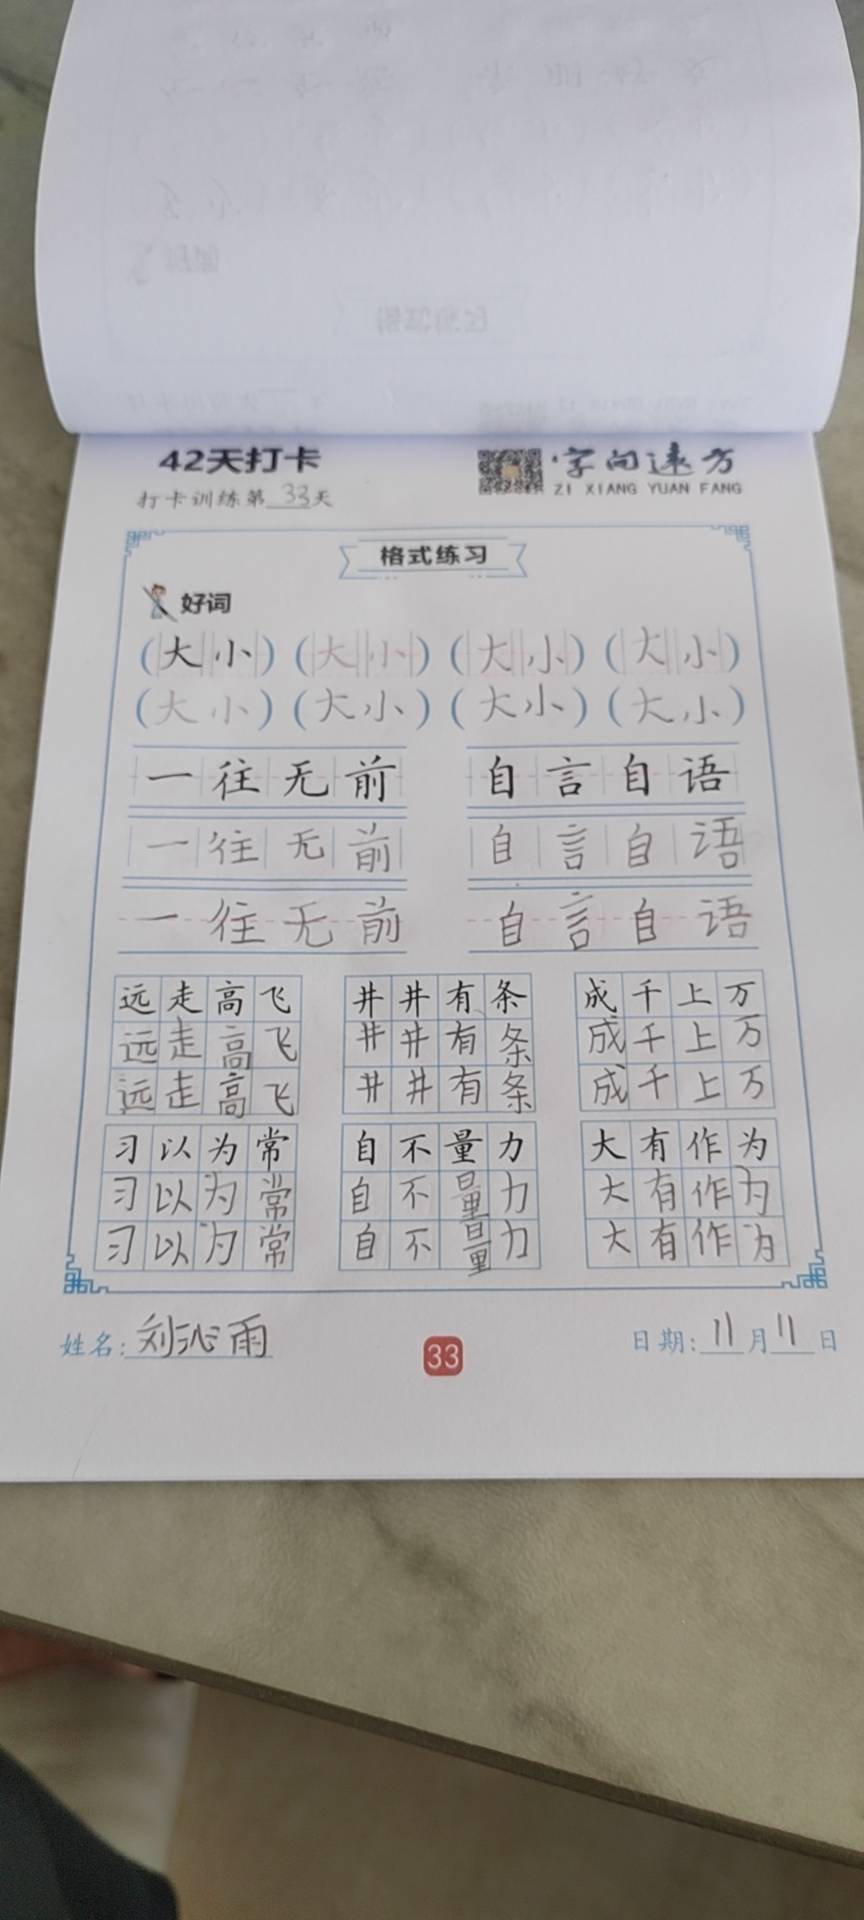 42天打卡
字向远方
打卡训练第33天
ZI XIANG YUAN FANG
格式练习
好词
(大小)(大小)(大小)(大小)
(大小)(大小)(大小)(大小)
一往无前 自言自语
一往无前 自言自语
一往无前 自言自语
远走高飞 井井有条 成千上万
远走高飞 井井有条 成千上万
远走高飞 井井有条 成千上万
习以为常 自不量力 大有作为
习以为常 自不量力 大有作为
习以为常 自不量力 大有作为
姓名:刘沁雨 33 日期:11月11日